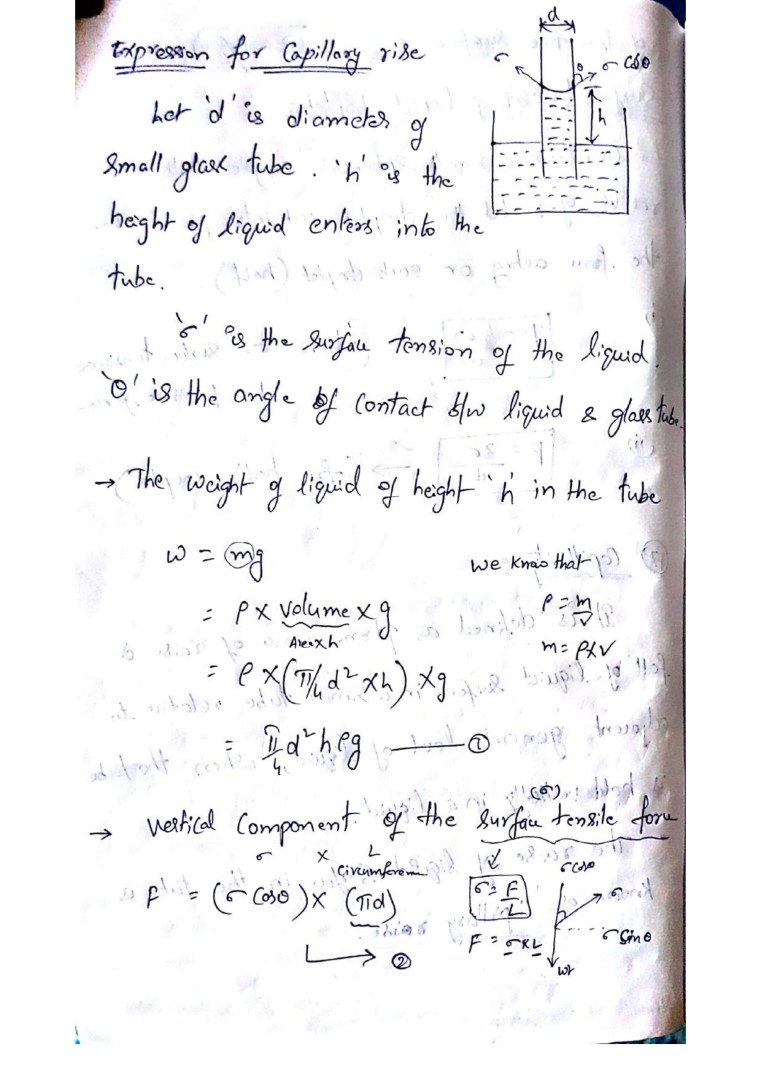 Expression for Capillary rise
Let 'd' is diameter of
Small glass tube. 'h' is the
height of liquid enters into the
tube.
d
σ
θ
σ cosθ
h
'σ' is the surface tension of the liquid.
'θ' is the angle of contact b/w liquid & glass tube.
→ The weight of liquid of height 'h' in the tube
w = mg
we know that
= ρ x volume x g
Area x h
ρ = m/V
m = ρxV
= ρ x (π/4 d² x h) x g
= π/4 d² h ρ g —— ①
(σ)
→ Vertical Component of the surface tensile force
σ x L
Circumference
F = (σ Cosθ) x (πd)
σ = F/L
F = σ x L
σ cosθ
σ
σ sinθ
wt
→ ②